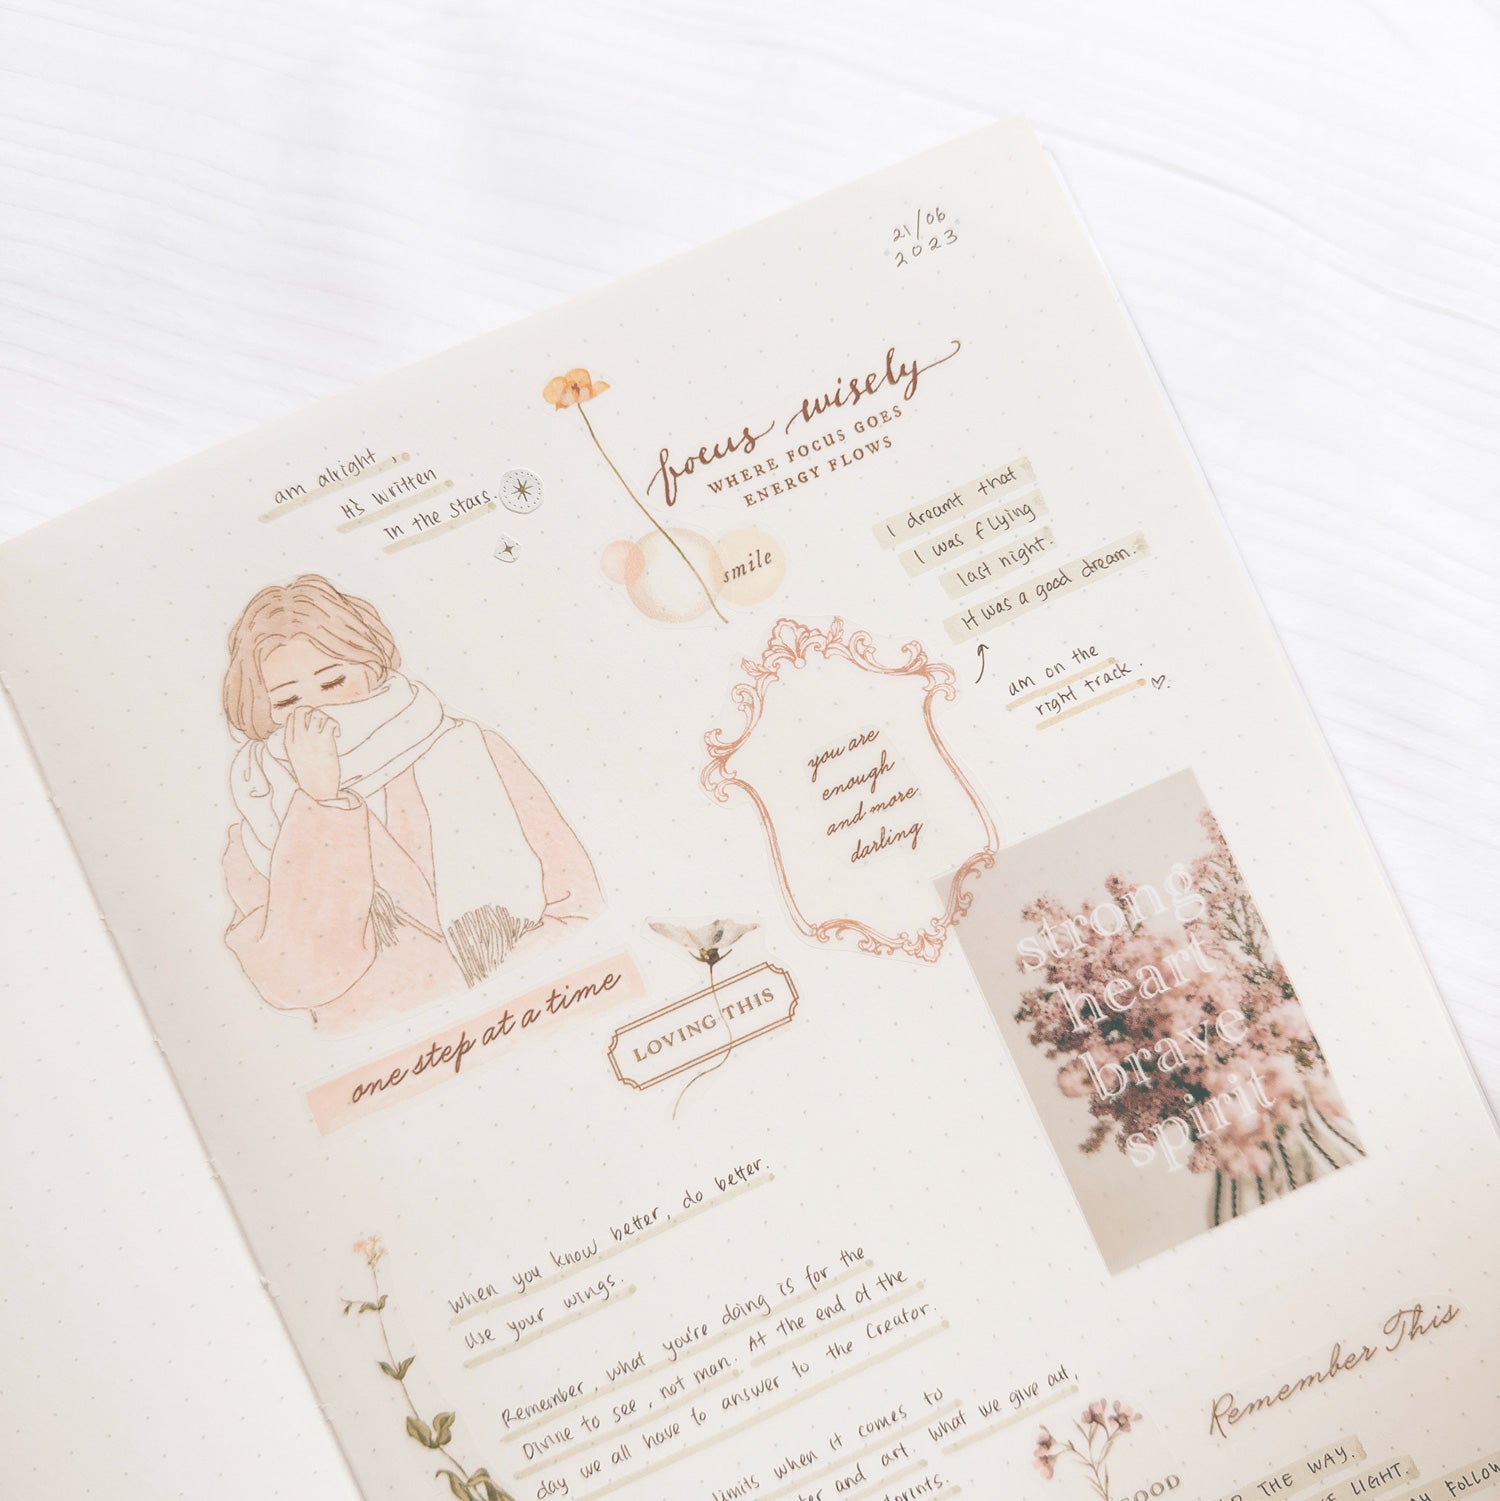 21/06
2023
focus wisely
WHERE FOCUS GOES
ENERGY FLOWS
am alright,
It's written
in the stars.
smile
I dreamt that
I was flying
last night.
It was a good dream.
am on the
right track.
you are
enough
and more
darling
strong
heart
brave
spirit
one step at a time
LOVING THIS
When you know better, do better.
Use your wings.
Remember, what you're doing is for the
Divine to see, not man. At the end of the
day we all have to answer to the Creator.
limits when it comes to
and art. What we give out,
Remember This
THE WAY.
LIGHT.